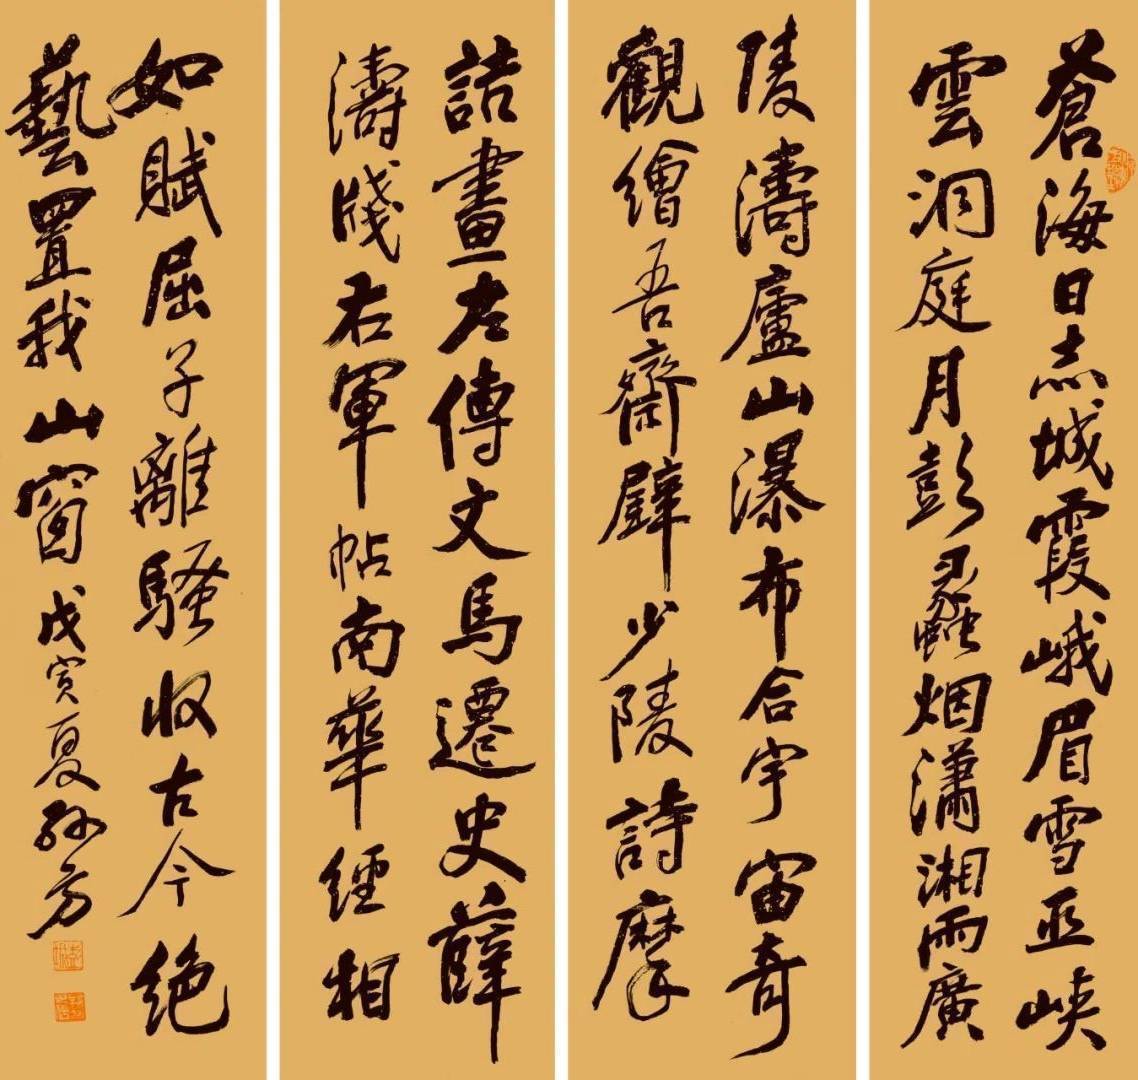 蒼海日赤城霞峨眉雪巫峡
雲洞庭月彭蠡烟潇湘雨廣
陵濤廬山瀑布合宇宙奇
觀繪吾齋壁少陵詩摩
詰畫左傳文馬遷史薛
濤牋右軍帖南華經相
如賦屈子離騷收古今絕
藝置我山窗戊寅夏孫方